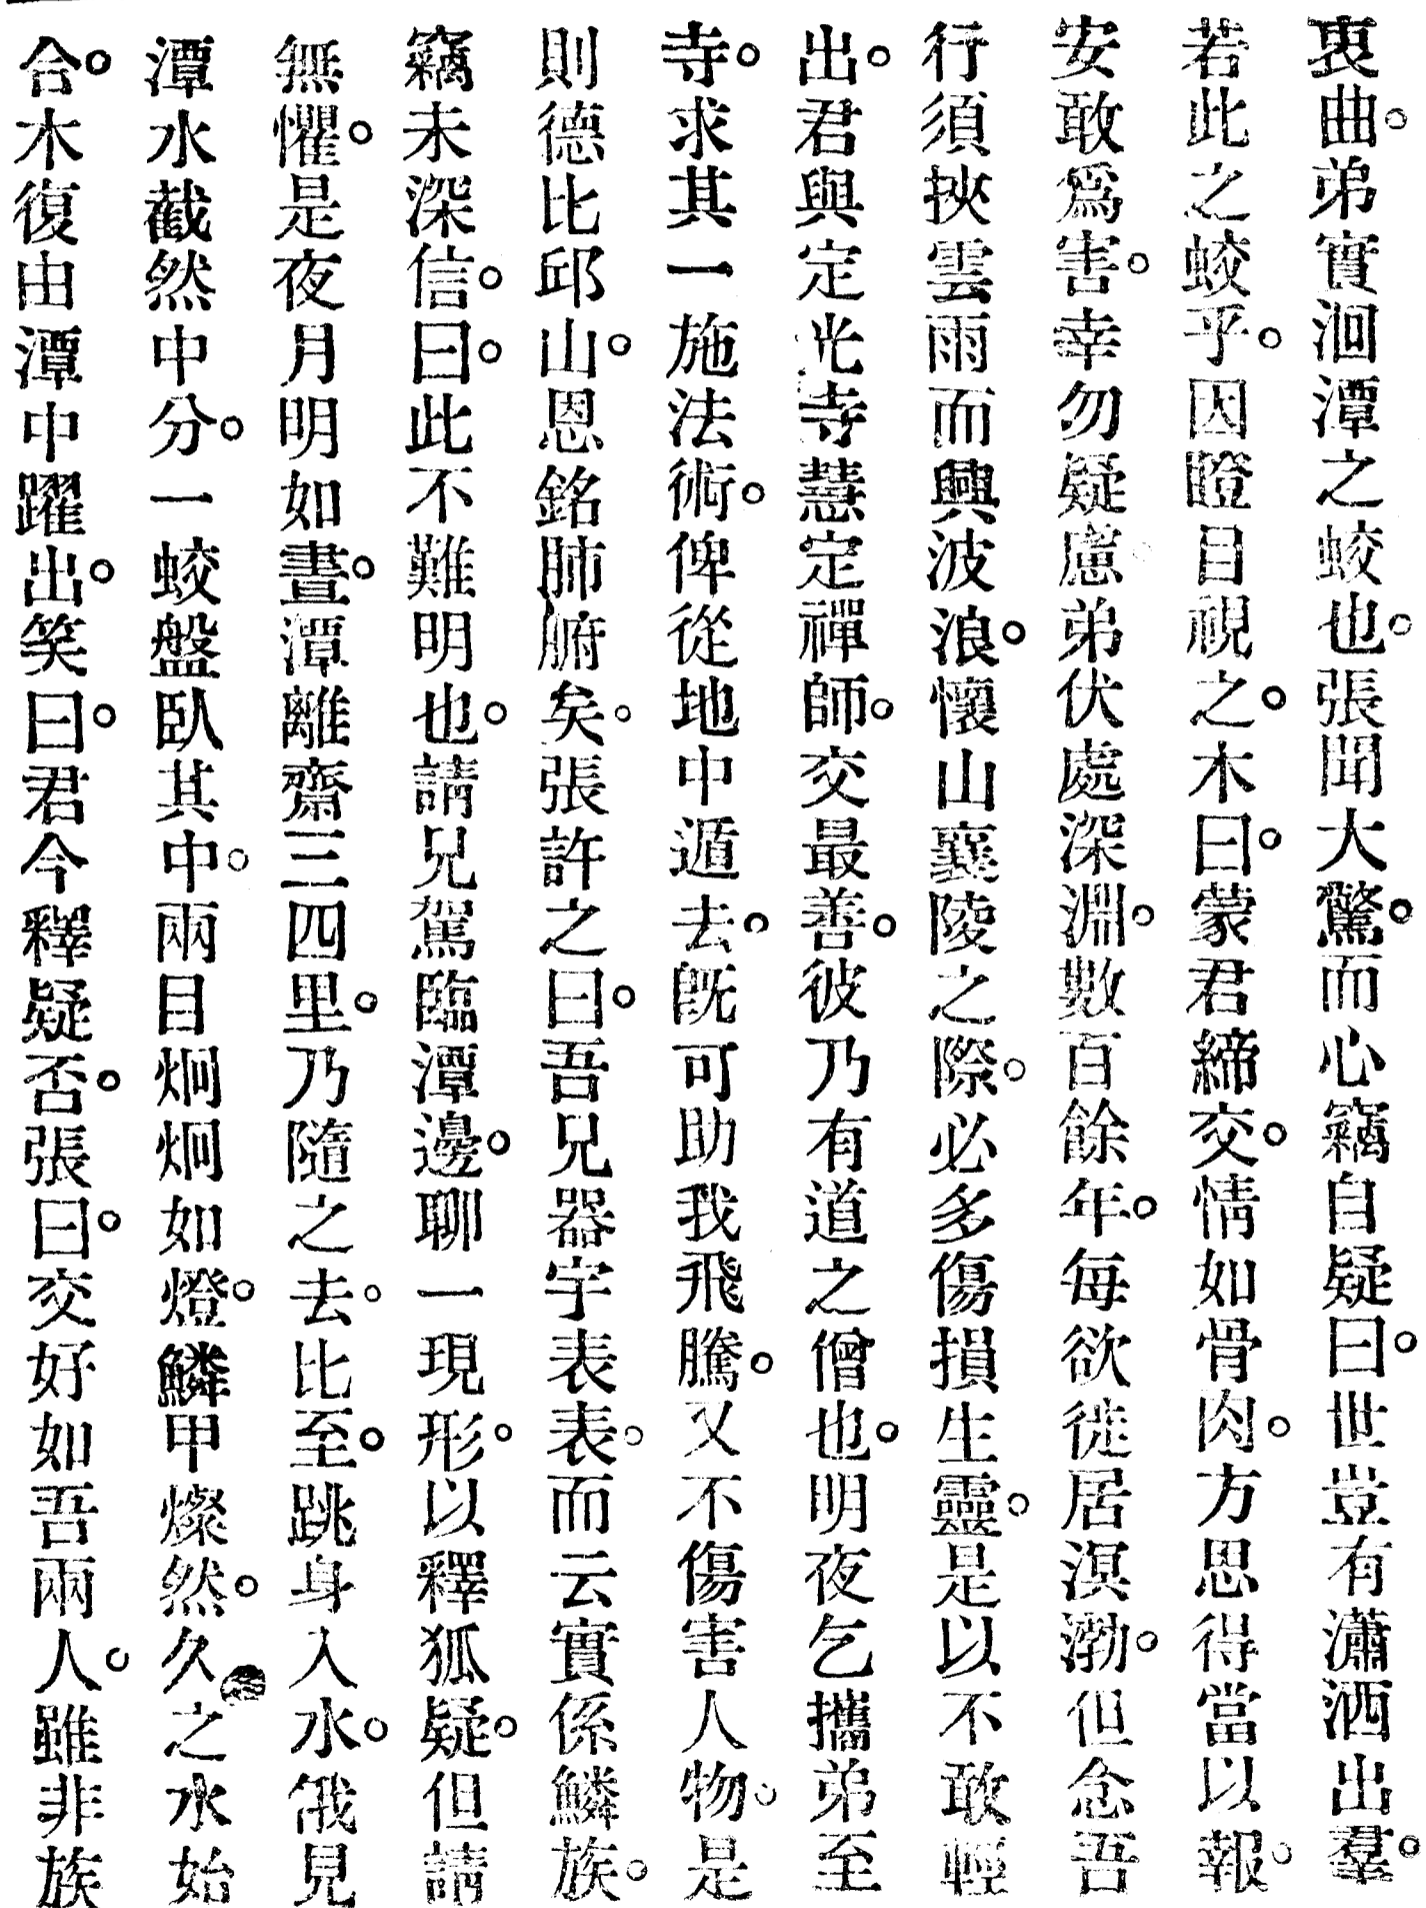 衷曲。弟實洄潭之蛟也。張聞大驚。而心竊自疑曰。世豈有瀟洒出羣。
若此之蛟乎。因瞪目視之。木曰。蒙君締交。情如骨肉。方思得當以報。
安敢爲害。幸勿疑慮。弟伏處深淵。數百餘年。每欲徙居溟渤。但念吾
行須挾雲雨而興波浪。懷山襄陵之際。必多傷損生靈。是以不敢輕
出。君與定光寺慧定禪師。交最善。彼乃有道之僧也。明夜乞攜弟至
寺。求其一施法術。俾從地中遁去。旣可助我飛騰。又不傷害人物。是
則德比邱山。恩銘肺腑矣。張許之曰。吾兄器宇表表。而云實係鱗族。
竊未深信。曰。此不難明也。請兄駕臨潭邊。聊一現形。以釋狐疑。但請
無懼。是夜月明如晝。潭離齋三四里。乃隨之去。比至。跳身入水。俄見
潭水截然中分。一蛟盤臥其中。兩目炯炯如燈。鱗甲燦然。久之水始
合。木復由潭中躍出。笑曰。君今釋疑否。張曰。交好如吾兩人。雖非族